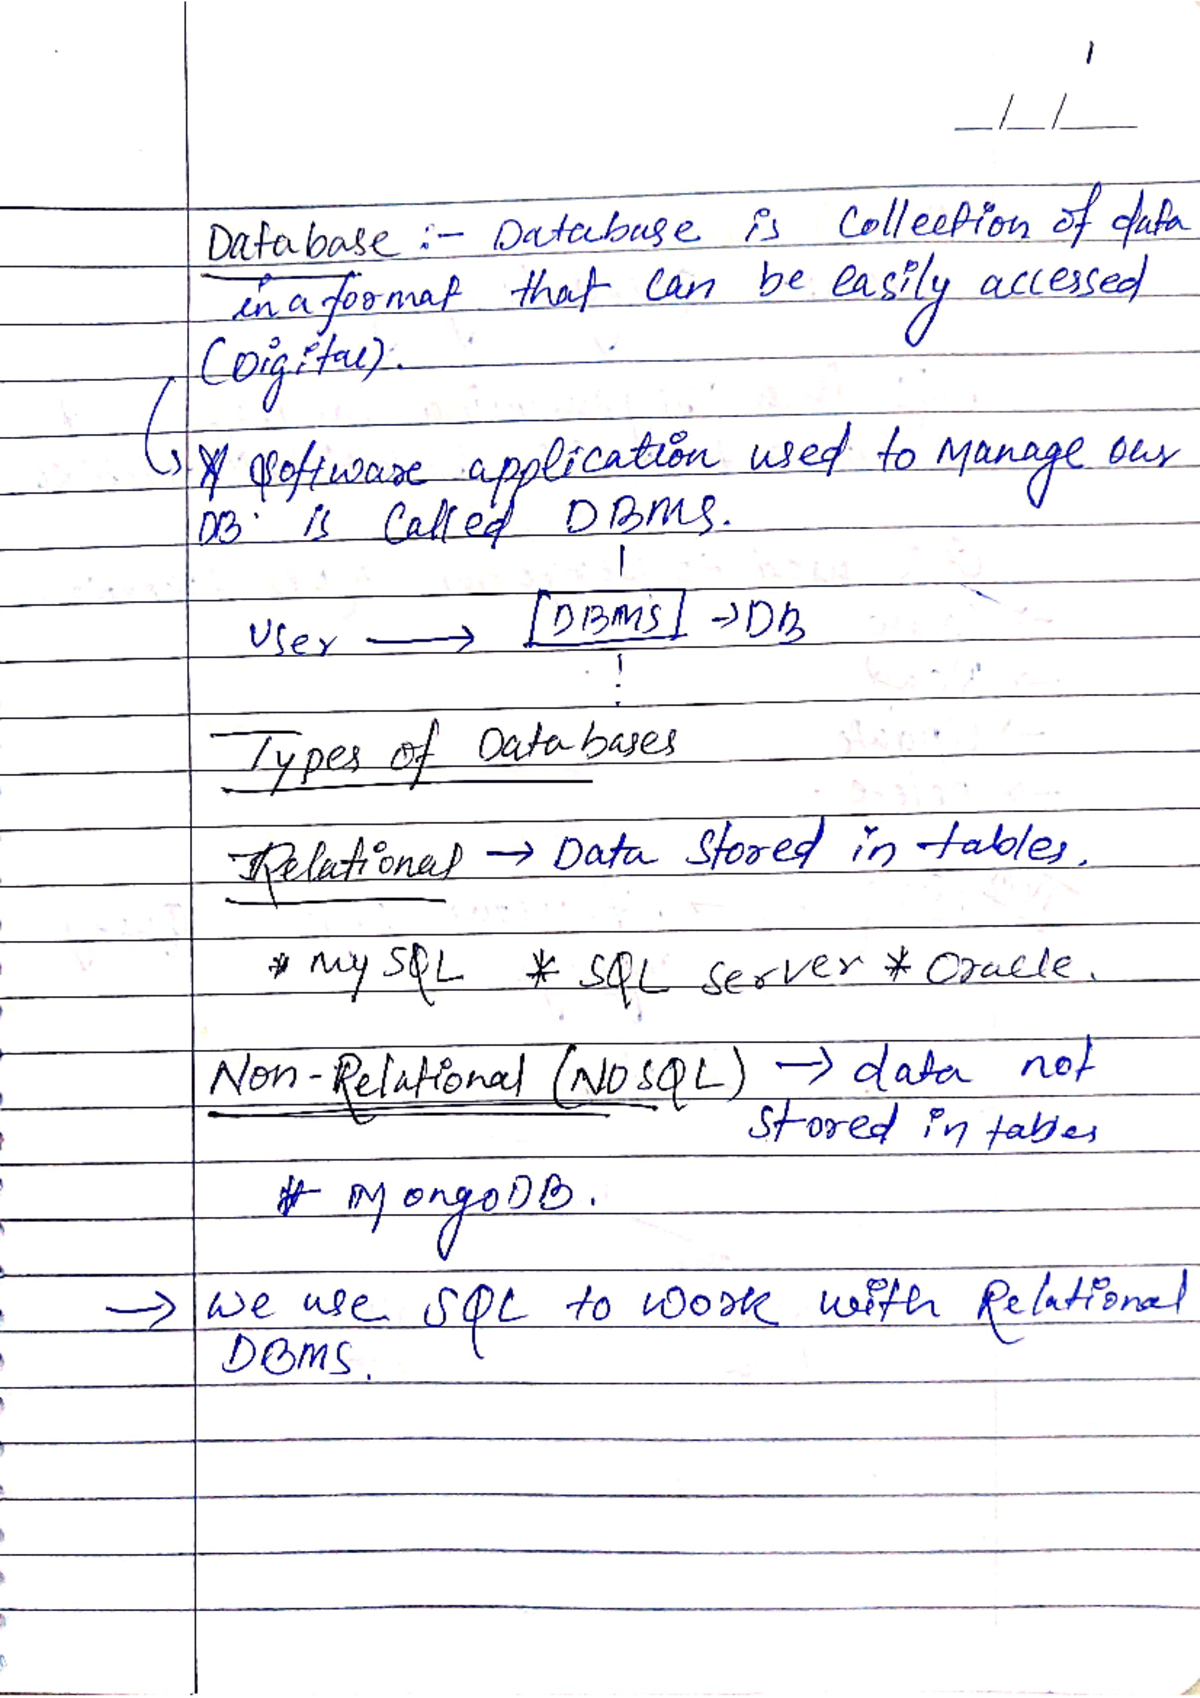 1
_/_/__
Database :- Database is Collection of data
in a format that can be easily accessed
(Digital).
* Software application used to Manage our
DB. is Called DBMS.
User → [DBMS] → DB
Types of Databases
Relational → Data Stored in tables.
* MySQL * SQL Server * Oracle.
Non-Relational (NOSQL) → data not
Stored in tables
* MongoDB.
→ We use SQL to Work with Relational
DBMS.